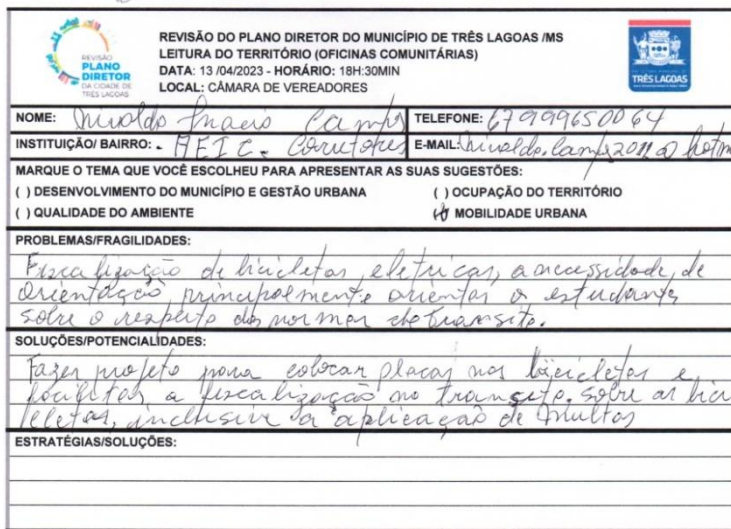 REVISÃO
PLANO
DIRETOR
DA CIDADE DE
TRÊS LAGOAS
REVISÃO DO PLANO DIRETOR DO MUNICÍPIO DE TRÊS LAGOAS /MS
LEITURA DO TERRITÓRIO (OFICINAS COMUNITÁRIAS)
DATA: 13 /04/2023 - HORÁRIO: 18H:30MIN
LOCAL: CÂMARA DE VEREADORES
TRÊS LAGOAS
NOME: Inacio Campos TELEFONE: 67999650064
INSTITUIÇÃO/ BAIRRO: - AEIC - Corretores E-MAIL:
MARQUE O TEMA QUE VOCÊ ESCOLHEU PARA APRESENTAR AS SUAS SUGESTÕES:
( ) DESENVOLVIMENTO DO MUNICÍPIO E GESTÃO URBANA ( ) OCUPAÇÃO DO TERRITÓRIO
( ) QUALIDADE DO AMBIENTE (X) MOBILIDADE URBANA
PROBLEMAS/FRAGILIDADES:
Fiscalização de bicicletas, eletricas, a necessidade, de
orientação principalmente orientar o estudante
sobre o respeito das normas de transito.
SOLUÇÕES/POTENCIALIDADES:
Fazer projeto para colocar placas nas bicicletas e
facilitar a fiscalização no transito, sobre as bici
cletas, inclusive a aplicação de multas
ESTRATÉGIAS/SOLUÇÕES: